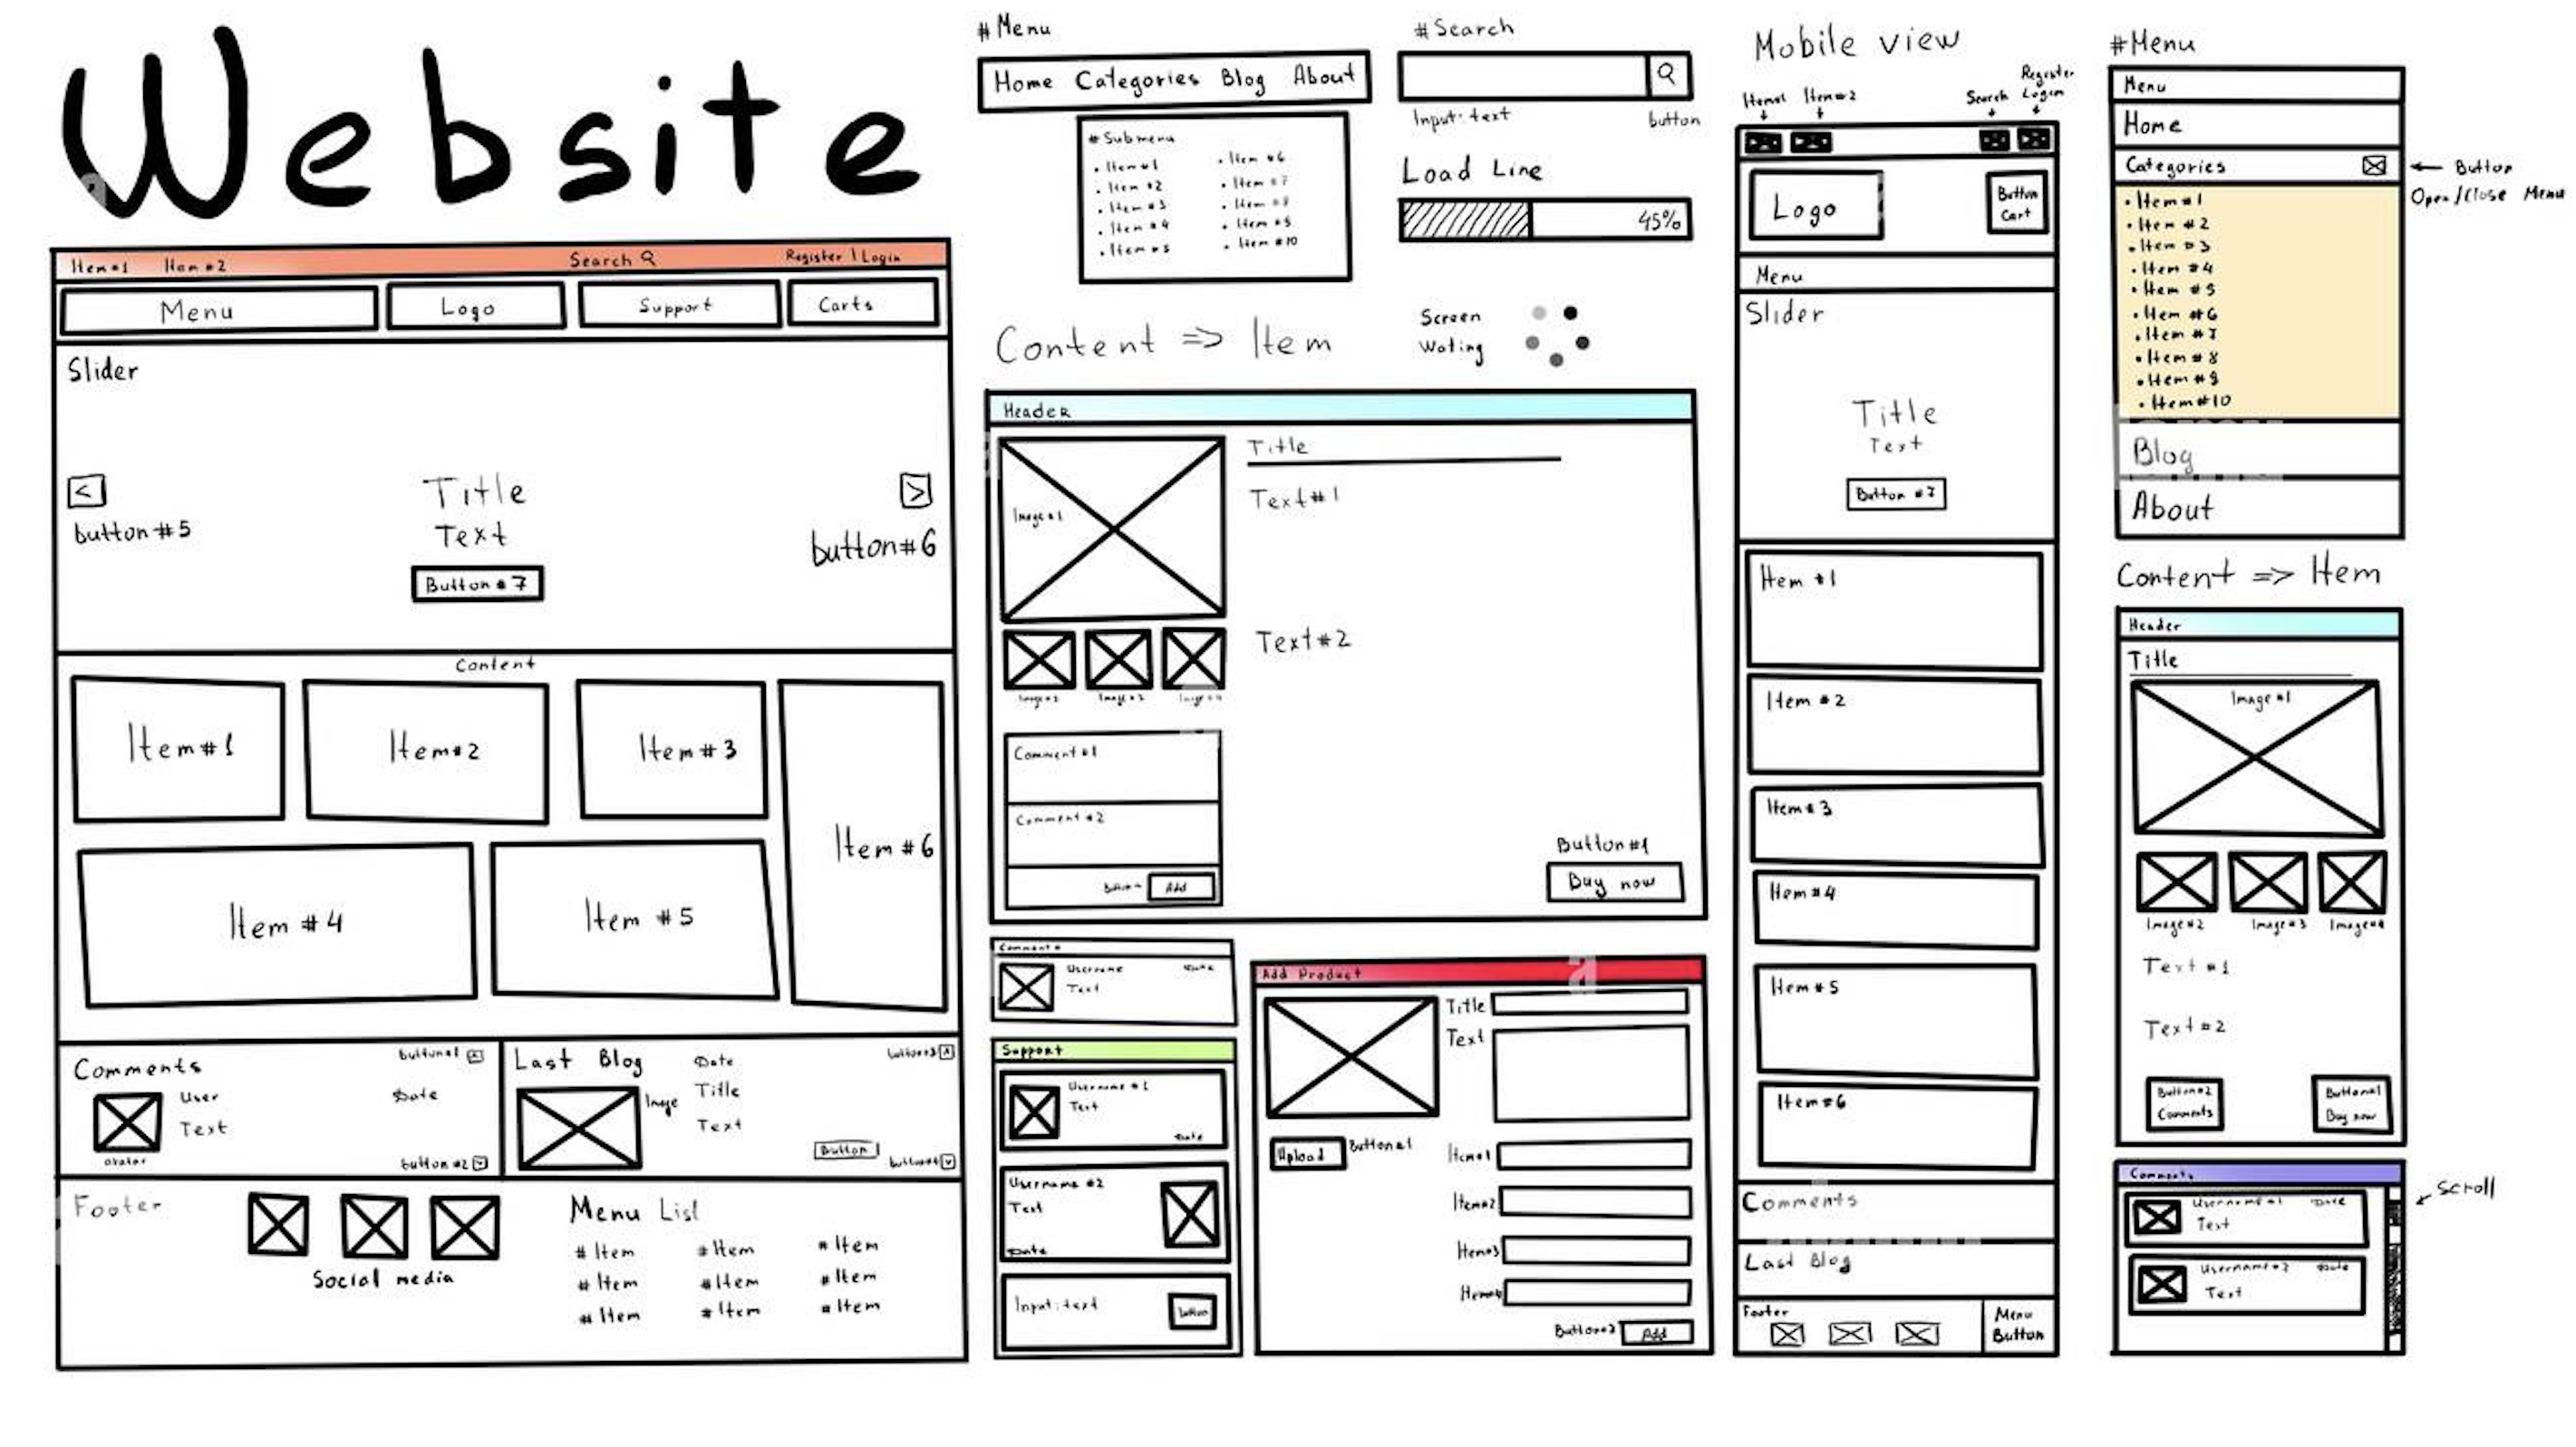 Website
Item#1 Item#2 Search Register | Login
Menu Logo Support Carts
Slider
< >
Title
button#5 Text button#6
Button#7
Content
Item#1 Item#2 Item#3
Item#6
Item #4 Item #5
Comments button#1
User Date
Text
avatar button#2
Last Blog Date button#3
Image Title
Text
Button button#4
Footer
Social media
Menu List
# Item # Item # Item
# Item # Item # Item
# Item # Item # Item
#Menu
Home Categories Blog About
#Submenu
• Item#1 • Item #6
• Item #2 • Item #7
• Item #3 • Item #8
• Item #4 • Item #9
• Item #5 • Item #10
#Search
Input: text button
Load Line
45%
Screen
Wating
Content => Item
Header
Title
Image#1 Text#1
Text#2
Image#2 Image#3 Image#4
Comment#1
Comment#2
Add
Button#1
Buy now
Comments
Username Date
Text
Support
Username #1
Text
Date
Username #2
Text
Date
Input: text button
Add Product
Title
Text
Upload Button#1
Item#1
Item#2
Item#3
Item#4
Button#2 Add
Mobile view
Item#1 Item#2 Search Register
Login
Logo Button
Cart
Menu
Slider
Title
Text
Button #7
Item #1
Item #2
Item#3
Item#4
Item#5
Item#6
Comments
Last Blog
Footer Menu
Button
#Menu
Menu
Home
Categories ← Button
Open/Close Menu
• Item#1
• Item #2
• Item #3
• Item #4
• Item #5
• Item #6
• Item #7
• Item #8
• Item #9
• Item#10
Blog
About
Content => Item
Header
Title
Image#1
Image#2 Image#3 Image#4
Text #1
Text#2
Button#2 Button#1
Comments Buy now
Comments
Username#1 Date
Text
Username#2 Date
Text
Scroll